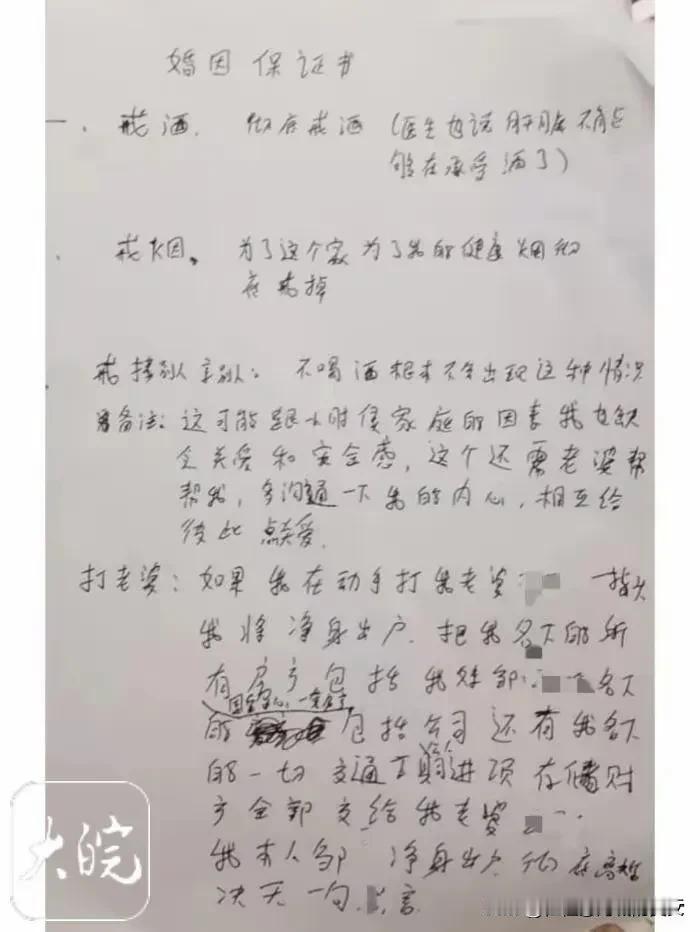 婚因保证书
一、戒酒. 彻底戒酒 (医生也说肝脏不能
够在承受酒了)
、戒烟。为了这个家为了我的健康烟彻
底戒掉
不喝酒根本不会出现这种情况
这可能跟小时侯家庭的因素我也缺
乏关爱和安全感,这个还需老婆帮
帮我,多沟通一下我的内心,相互给
彼此点关爱.
打老婆:如果我在动手打我老婆 一指头
我将净身出户.把我名下的所
有房产包括我 名下
的 包括公司还有我名下
的一切交通工具 存储财
产全部交给我老婆
我本人邹 净身出户 彻底离婚
决无一句 言.
大皖